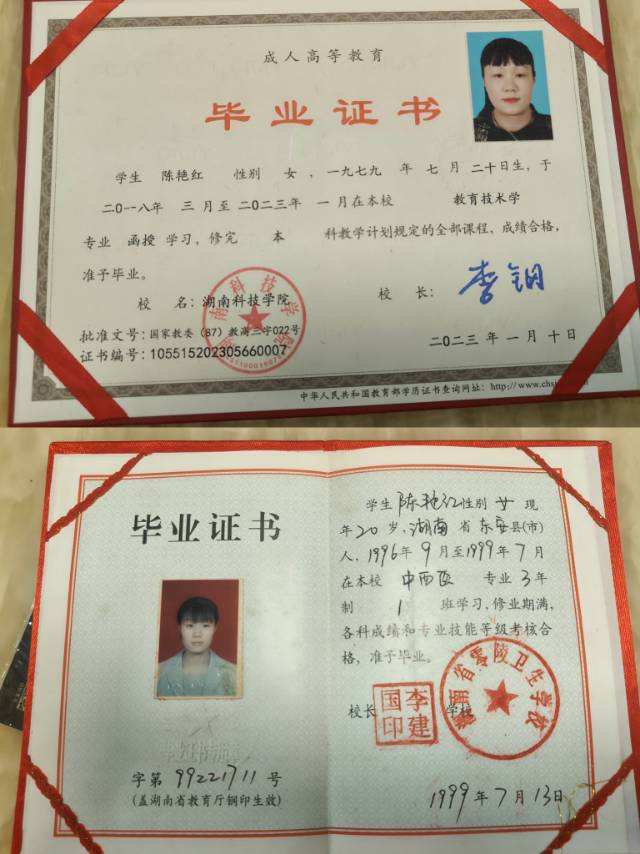 成人高等教育
毕业证书
学生 陈艳红 性别 女 ，一九七九 年 七 月 二十日生，于
二〇一八年 三 月至 二〇二三年 一 月在本校 教育技术学
专业 函授 学习，修完 本 科教学计划规定的全部课程，成绩合格，
准予毕业。
校 名：湖南科技学院 校 长： 李钢
批准文号：国家教委（87）教高三字022号
证书编号：105515202305660007 二〇二三 年 一 月 十 日
中华人民共和国教育部学历证书查询网址：http://www.chsi
毕业证书
学生 陈艳红 性别 女 现
年 20 岁，湖南 省 东安 县(市)
人，1996年 9 月至1999年 7 月
在本校 中西医 专业 3 年
制 1 班学习，修业期满，
各科成绩和专业技能等级考核合
格，准予毕业。
校长 李建国印 学校
湖南省零陵卫生学校
字第 99221711 号
(盖湖南省教育厅钢印生效)
1999 年 7 月 13 日